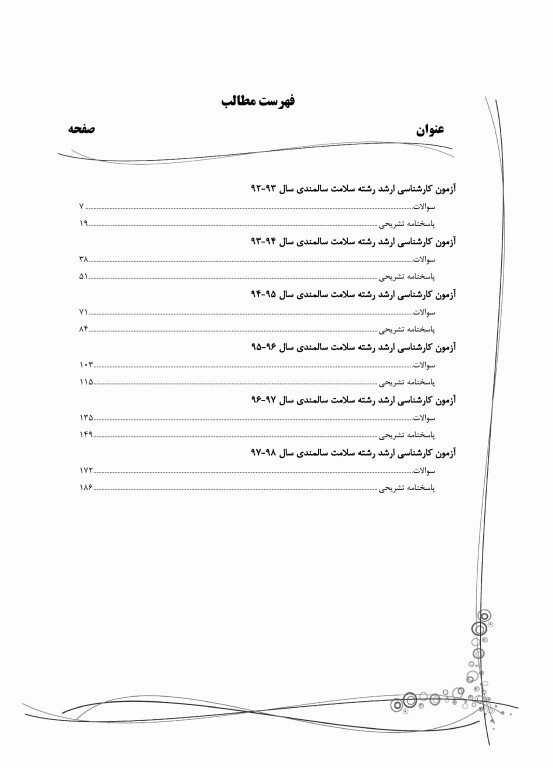 فهرست مطالب
عنوان صفحه
آزمون کارشناسی ارشد رشته سلامت سالمندی سال ۹۳-۹۲
سوالات ۷
پاسخنامه تشریحی ۱۹
آزمون کارشناسی ارشد رشته سلامت سالمندی سال ۹۴-۹۳
سوالات ۳۸
پاسخنامه تشریحی ۵۱
آزمون کارشناسی ارشد رشته سلامت سالمندی سال ۹۵-۹۴
سوالات ۷۱
پاسخنامه تشریحی ۸۴
آزمون کارشناسی ارشد رشته سلامت سالمندی سال ۹۶-۹۵
سوالات ۱۰۳
پاسخنامه تشریحی ۱۱۵
آزمون کارشناسی ارشد رشته سلامت سالمندی سال ۹۷-۹۶
سوالات ۱۳۵
پاسخنامه تشریحی ۱۴۹
آزمون کارشناسی ارشد رشته سلامت سالمندی سال ۹۸-۹۷
سوالات ۱۷۲
پاسخنامه تشریحی ۱۸۶